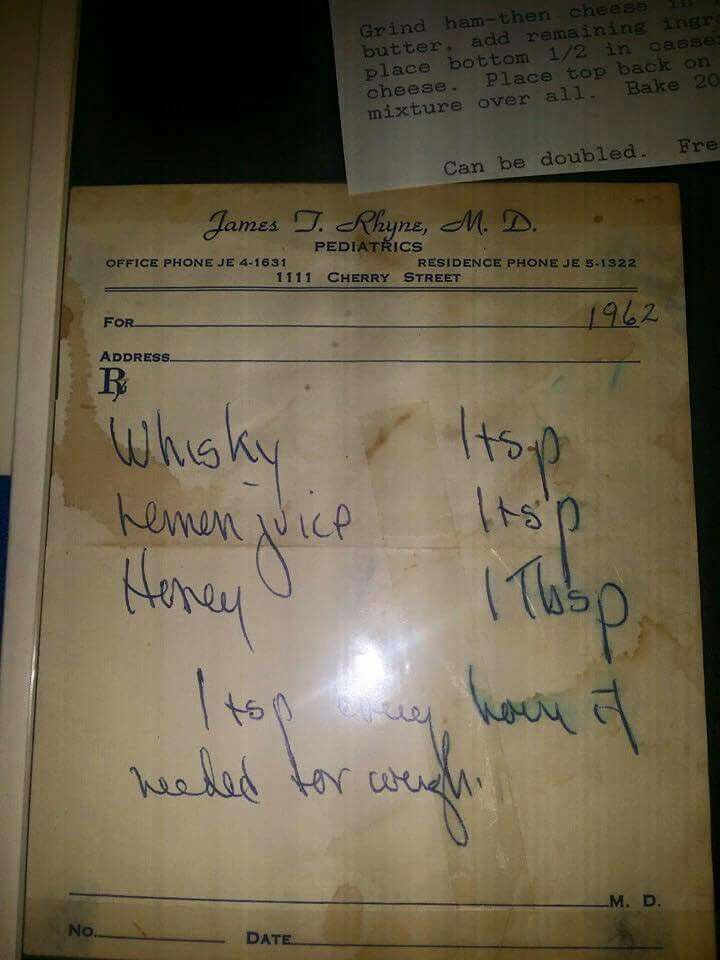 Grind ham-then cheese in
butter, add remaining ingr
place bottom 1/2 in casse
cheese. Place top back on
mixture over all. Bake 20
Can be doubled. Fre
James T. Rhyne, M. D.
PEDIATRICS
OFFICE PHONE JE 4-1631 RESIDENCE PHONE JE 5-1322
1111 CHERRY STREET
FOR 1962
ADDRESS
℞
Whisky 1 tsp
Lemon juice 1 tsp
Honey 1 Tbsp
1 tsp every hour if
needed for cough.
M. D.
No. DATE